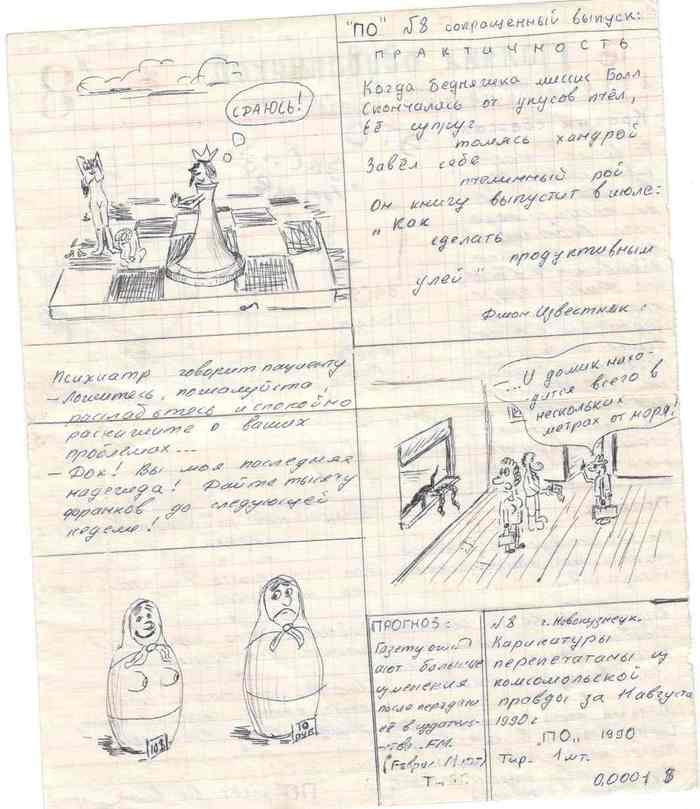 "ПО" №8 сокращенный выпуск:
ПРАКТИЧНОСТЬ
Когда бедняжка миссис Болл
Скончалась от укусов пчёл,
Её супруг,
томясь хандрой
Завёл себе
пчелинный рой
Он книгу выпустит в июле:
„Как
сделать
продуктивным
улей"
Джон Известняк
СДАЮСЬ!
Психиатр говорит пациенту
– Ложитесь, пожалуйста,
расслабьтесь и спокойно
раскажите о ваших
проблемах...
– Док! Вы моя последняя
надежда! Дайте тысячу
франков до следующей
недели!
...И домик нахо-
дится всего в
нескольких
метрах от моря!
10$
10
РУБ
ПРОГНОЗ:
Газету ожид
ают большие
изменения
после передачи
её в издатель-
ство
№8 г. Новокузнецк.
Карикатуры
перепечатаны из
комсомольской
правды за 11 августа
1990 г
"ПО" 1990
Тир. 1 шт.
0,0001 $